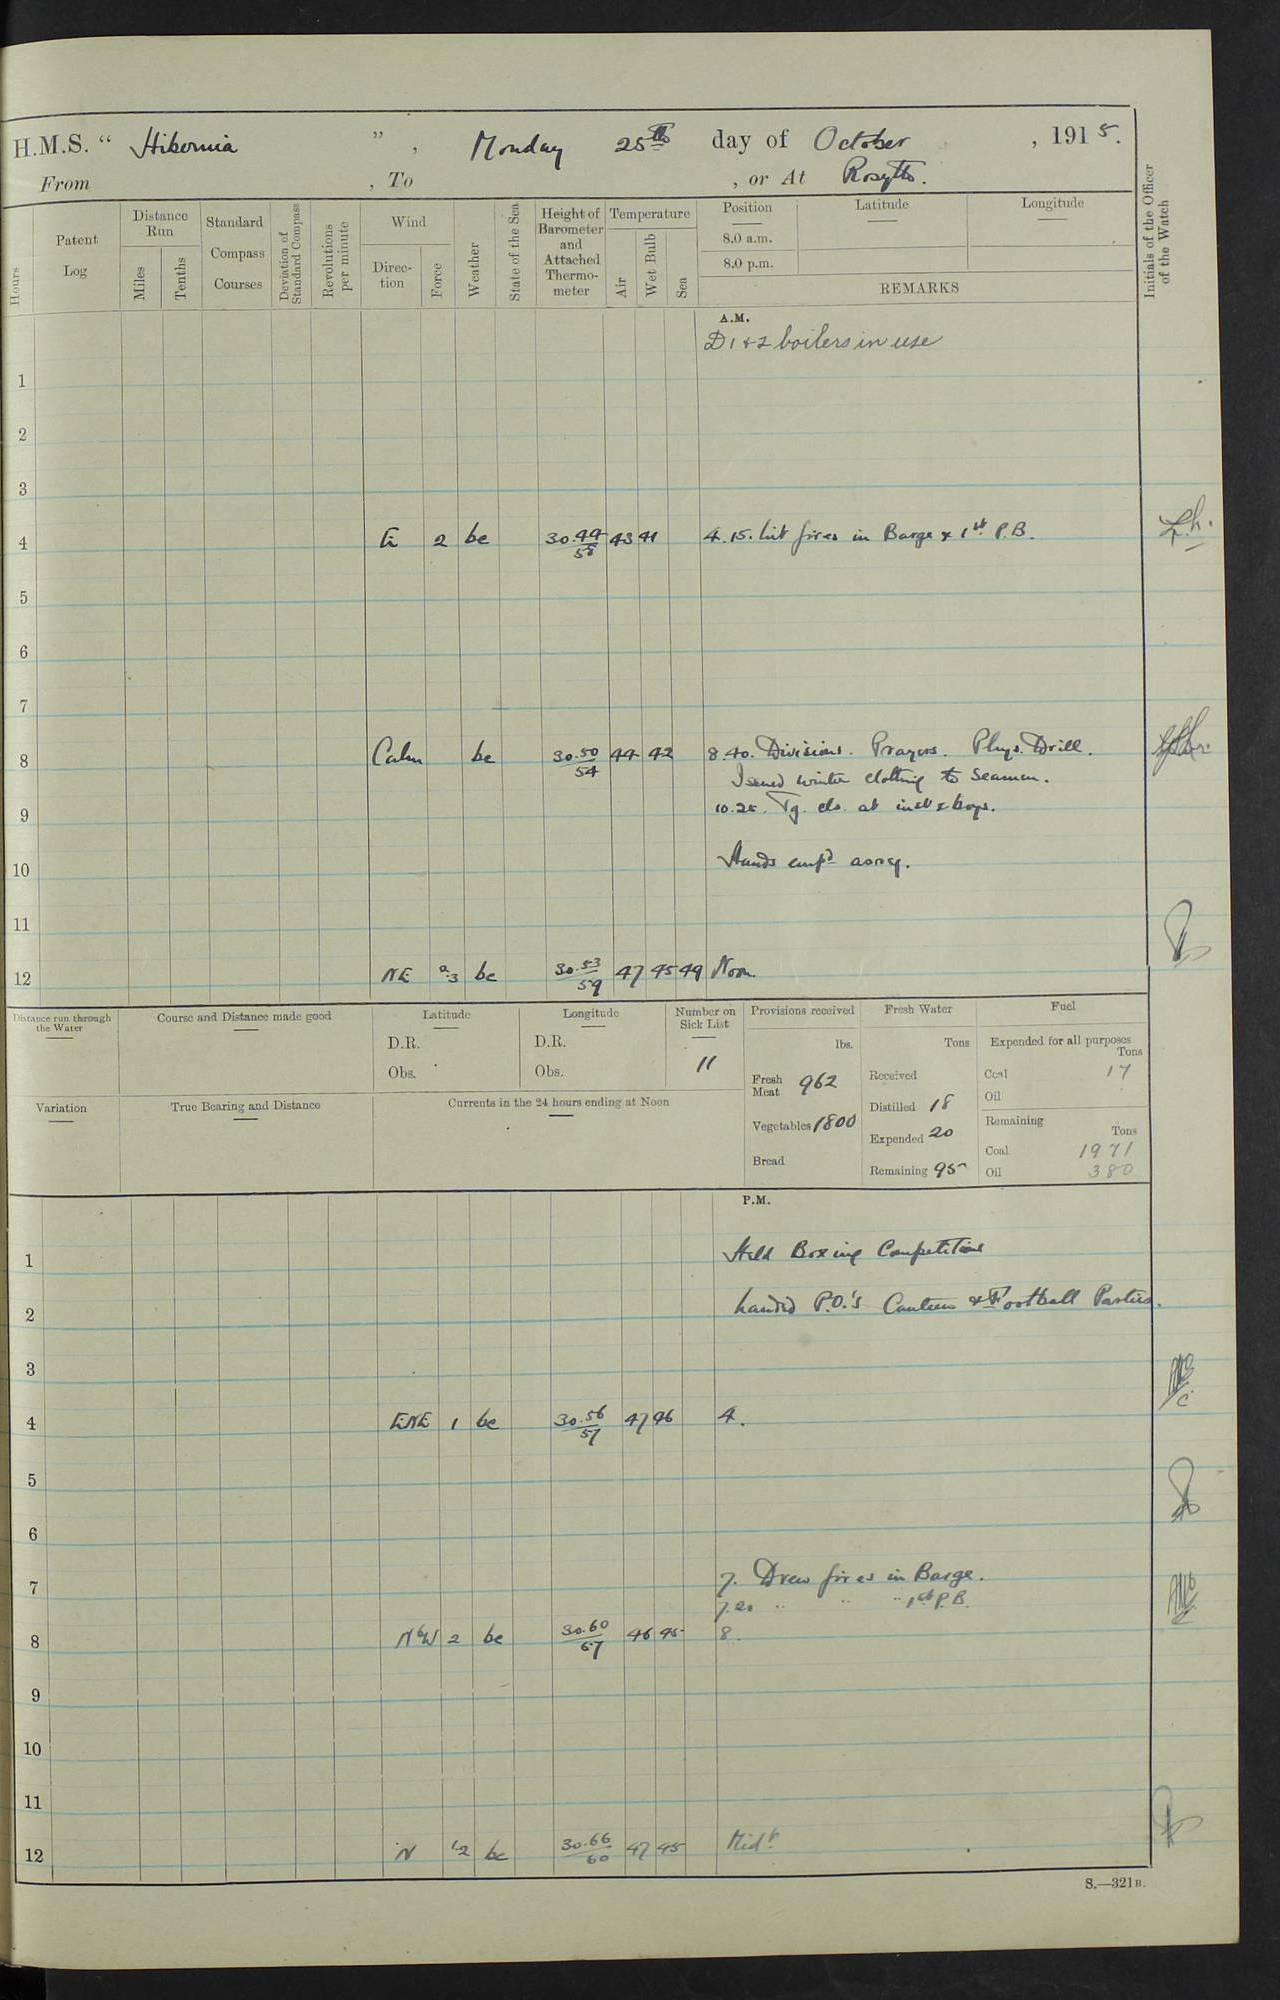 H.M.S. “ Hibernia ”, Monday 25th day of October, 1915.
From , To , or At Rosyth.
Hours
Patent Log
Distance Run
Miles
Tenths
Standard Compass Courses
Deviation of Standard Compass
Revolutions per minute
Wind
Direc-tion
Force
Weather
State of the Sea
Height of Barometer and Attached Thermo-meter
Temperature
Air
Wet Bulb
Sea
Position
8.0 a.m.
8.0 p.m.
Latitude
Longitude
REMARKS
Initials of the Officer of the Watch
A.M.
D 1 & 2 boilers in use
1
2
3
4 E 2 bc 30.44/58 43 41 4.15. Lit fires in Barge & 1st P.B.
5
6
7
8 Calm bc 30.50/54 44 42 8.40. Divisions. Prayers. Phys. Drill.
Issued winter clothing to Seamen.
9 10.25. Tg. cls. at instn & boys.
10 Hands empd. asrcy.
11
12 NE 2.3 bc 30.53/59 47 45 49 Noon
Distance run through the Water
Course and Distance made good
Latitude
D.R.
Obs.
Longitude
D.R.
Obs.
Number on Sick List
11
Provisions received
lbs.
Fresh Meat 962
Vegetables 1800
Bread
Fresh Water
Tons
Received
Distilled 18
Expended 20
Remaining 95
Fuel
Expended for all purposes
Tons
Coal 17
Oil
Remaining
Tons
Coal 1971
Oil 380
Variation
True Bearing and Distance
Currents in the 24 hours ending at Noon
P.M.
1 Held Boxing Competitions
2 Landed P.O.'s Canteen & Football Parties.
3
4 ENE 1 bc 30.56/57 47 46 4.
5
6
7 7. Drew fires in Barge.
7.20 " " " 1st P.B.
8 NbW 2 bc 30.60/67 46 45 8.
9
10
11
12 N 1.2 bc 30.66/60 47 45 Midt.
S.—321B.